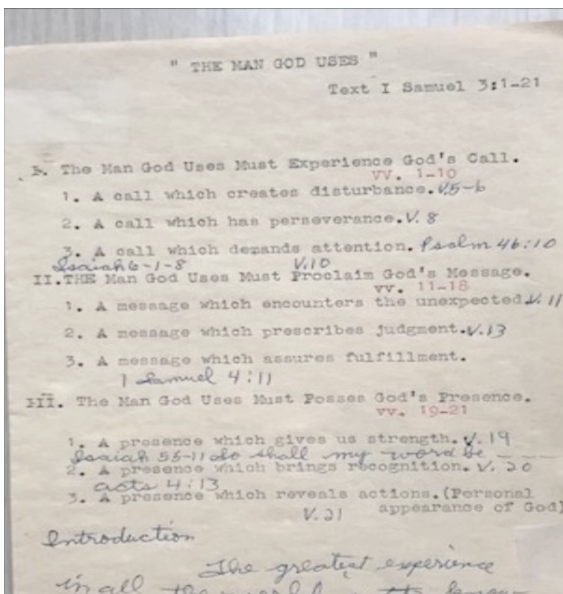 " THE MAN GOD USES "
Text I Samuel 3:1-21
I. The Man God Uses Must Experience God's Call.
vv. 1-10
1. A call which creates disturbance. V.5-6
2. A call which has perseverance. V. 8
3. A call which demands attention. Psalm 46:10
Isaiah 6-1-8 V.10
II.THE Man God Uses Must Proclaim God's Message.
vv. 11-18
1. A message which encounters the unexpected. V. 11
2. A message which prescribes judgment. V.13
3. A message which assures fulfillment.
1 Samuel 4:11
III. The Man God Uses Must Posses God's Presence.
vv. 19-21
1. A presence which gives us strength. V. 19
Isaiah 55-11 so shall my word be ----
2. A presence which brings recognition. V. 20
acts 4:13
3. A presence which reveals actions.(Personal
V.21 appearance of God)
Introduction
The greatest experience
in all the world